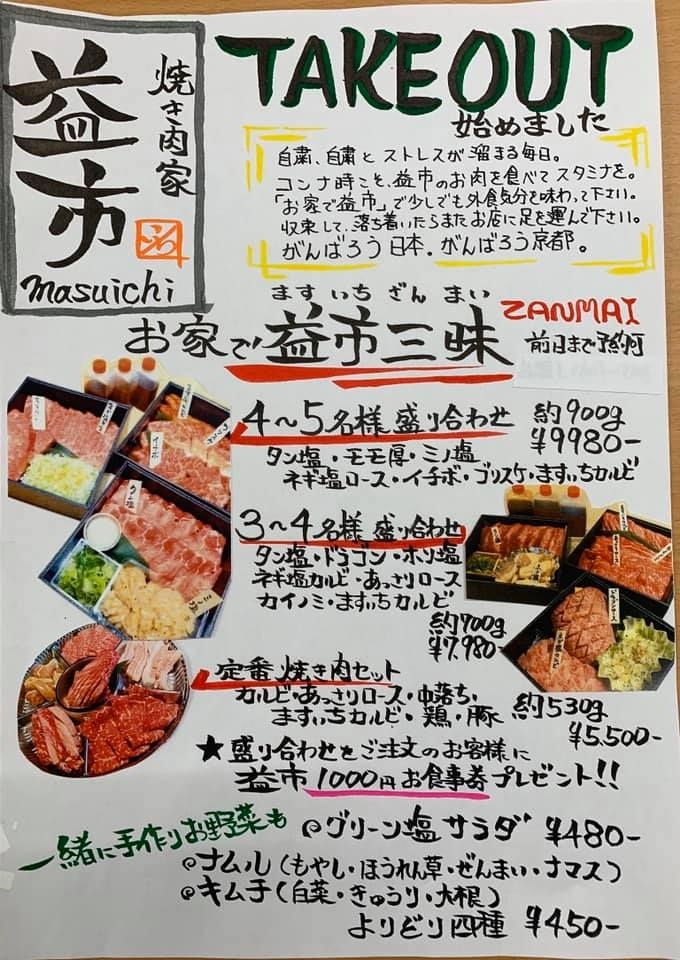 焼き肉家
益市
masuichi
TAKEOUT
始めました
自粛、自粛とストレスが溜まる毎日。
コンナ時こそ、益市のお肉を食べてスタミナを。
「お家で益市」で少しでも外食気分を味わって下さい。
収束して、落ち着いたらまたお店に足を運んで下さい。
がんばろう日本.がんばろう京都。
ますいちざんまい
お家で益市三昧
ZANMAI
前日まで予約可
4〜5名様盛り合わせ 約900g
¥9980-
タン塩・モモ厚・ミノ塩
ネギ塩ロース・イチボ・ゴリスケ・ますいちカルビ
3〜4名様盛り合わせ
タン塩・ドラゴン・ホソ塩
ネギ塩カルビ・あっさりロース
カイノミ・ますいちカルビ
約700g
¥7,980-
定番焼き肉セット
カルビ・あっさりロース・中落ち・
ますいちカルビ・鶏・豚
約530g
¥5,500-
★盛り合わせをご注文のお客様に
益市1000円お食事券プレゼント!!
一緒に手作りお野菜も
@グリーン塩サラダ ¥480-
@ナムル(もやし・ほうれん草・ぜんまい・ナマス)
@キムチ(白菜・きゅうり・大根)
よりどり四種 ¥450-